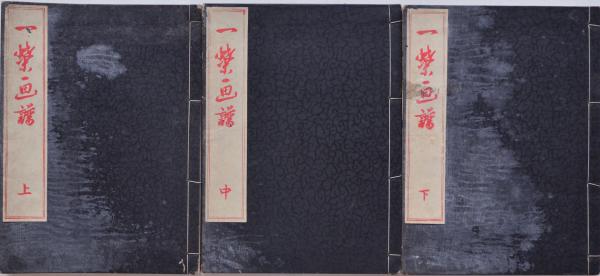 一蘂画譜
上
一蘂画譜
中
一蘂画譜
下